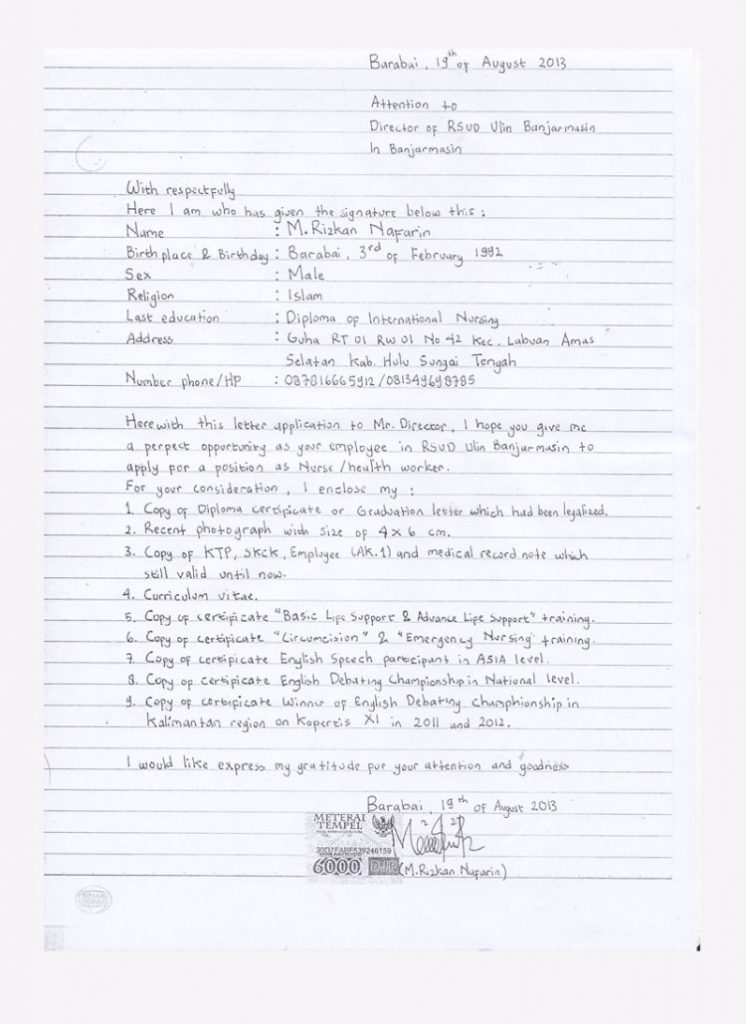 Barabai, 19th of August 2013
Attention to
Director of RSUD Ulin Banjarmasin
In Banjarmasin
With respectfully
Here I am who has given the signature below this :
Name : M. Rizkan Naparin
Birth place & Birthday : Barabai, 3rd of February 1992
Sex : Male
Religion : Islam
Last education : Diploma of International Nursing
Address : Guha RT 01 RW 01 No 42 Kec. Labuan Amas
Selatan Kab. Hulu Sungai Tengah
Number phone/HP : 087816665912 /081349698785
Herewith this letter application to Mr. Director, I hope you give me
a perpect opportunity as your employee in RSUD Ulin Banjarmasin to
apply for a position as Nurse /health worker.
For your consideration, I enclose my :
1. Copy of Diploma certificate or Graduation letter which had been legalized.
2. Recent photograph with size of 4 x 6 cm.
3. Copy of KTP, SKCK, Employee (AK.1) and medical record note which
still valid until now.
4. Curriculum vitae.
5. Copy of certificate "Basic Life Support & Advance Life Support" training.
6. Copy of certificate "Circumcision" & "Emergency Nursing" training.
7. Copy of certificate English Speech participant in ASIA level.
8. Copy of certificate English Debating Championship in National level.
9. Copy of certificate Winner of English Debating Champhionship in
Kalimantan region on Kopertis XI in 2011 and 2012.
I would like express my gratitude for your attention and goodness
Barabai, 19th OF August 2013
METERAI
TEMPEL
6000 DJP
(M. Rizkan Naparin)